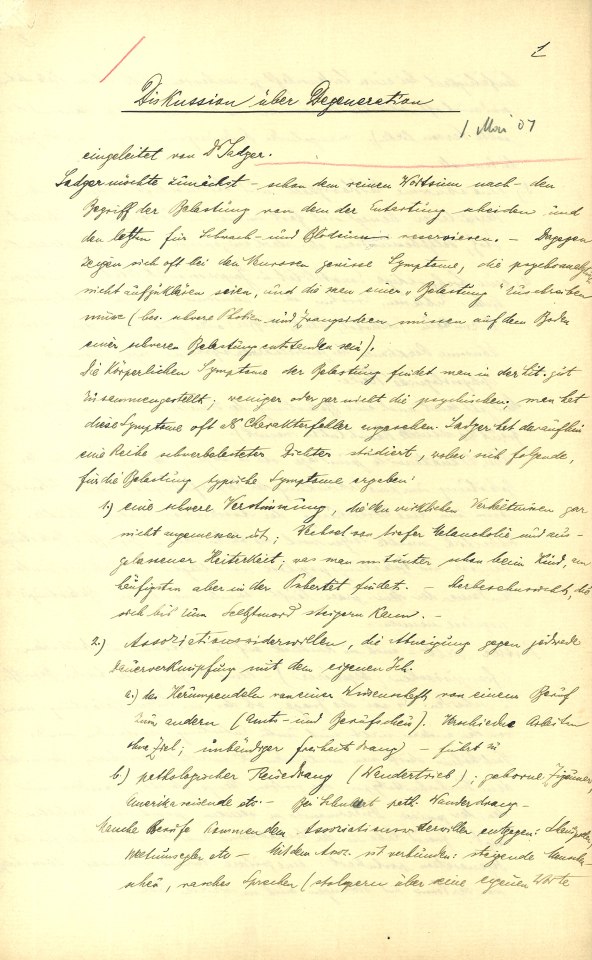 1
Diskussion über Degeneration
1. Mai 07
eingeleitet von Dr Sadger.
Sadger möchte zunächst – schon dem reinen Wortsinn nach – den
Begriff der Belastung von dem der Entartung scheiden und
den letzten für Schwach- und Blödsinn reservieren. – Dagegen
zeigen sich oft bei den Neurosen gewisse Symptome, die
nicht aufzuklären seien, und die man einer „Belastung" zuschreiben
müsse (bes. schwere Phobien und Zwangsideen müssen auf dem Boden
einer schweren Belastung entstanden sein).
Die körperlichen Symptome der Belastung findet man in der Lit. gut
zusammengestellt; weniger oder gar nicht die psychischen; man hat
diese Symptome oft als Charakterfehler angesehen. Sadger hat daraufhin
eine Reihe schwerbelasteter Dichter studiert, wobei sich folgende,
für die Belastung typische Symptome ergeben:
1.) eine schwere Verstimmung, die den wirklichen Verhältnissen gar
nicht angemessen ist; Wechsel von tiefer Melancholie und aus-
gelassener Heiterkeit; was man mitunter schon beim Kind, am
häufigsten aber in der Pubertät findet. – Sterbesehnsucht, die
sich bis zum Selbstmord steigern kann. –
2.) Assoziationswiderwillen, die Abneigung gegen jedwede
Dauerverknüpfung mit dem eigenen Ich.
a.) das Herumpendeln von einer Wissenschaft, von einem Beruf
zum andern (Amts- und Berufsscheu). Verschiedene Arbeiten
ohne Ziel; unbändiger Freiheitsdrang – führt zu
b.) pathologischer Reisedrang (Wandertrieb); geborne Zigeuner,
Amerikareisende etc. – Bei path. Wanderdrang –
Manche Berufe kommen dem Assoziationswiderwillen entgegen:
Weltumsegler etc – Mit dem Assoz. ist verbunden: steigende Mensch-
scheu, rasches Sprechen (stolpern über seine eigenen Worte